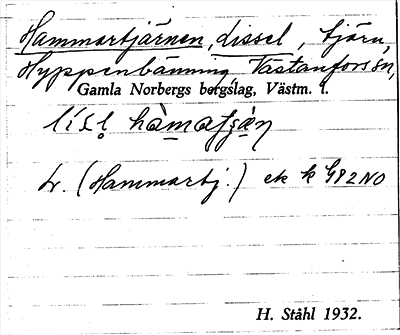 Hammartjärnen, Lissel, tjärn,
Hyppenbänning, Västanfors sn,
Gamla Norbergs bergslag, Västm. l.
L. (Hammartj.) ek k G82NO
H. Ståhl 1932.